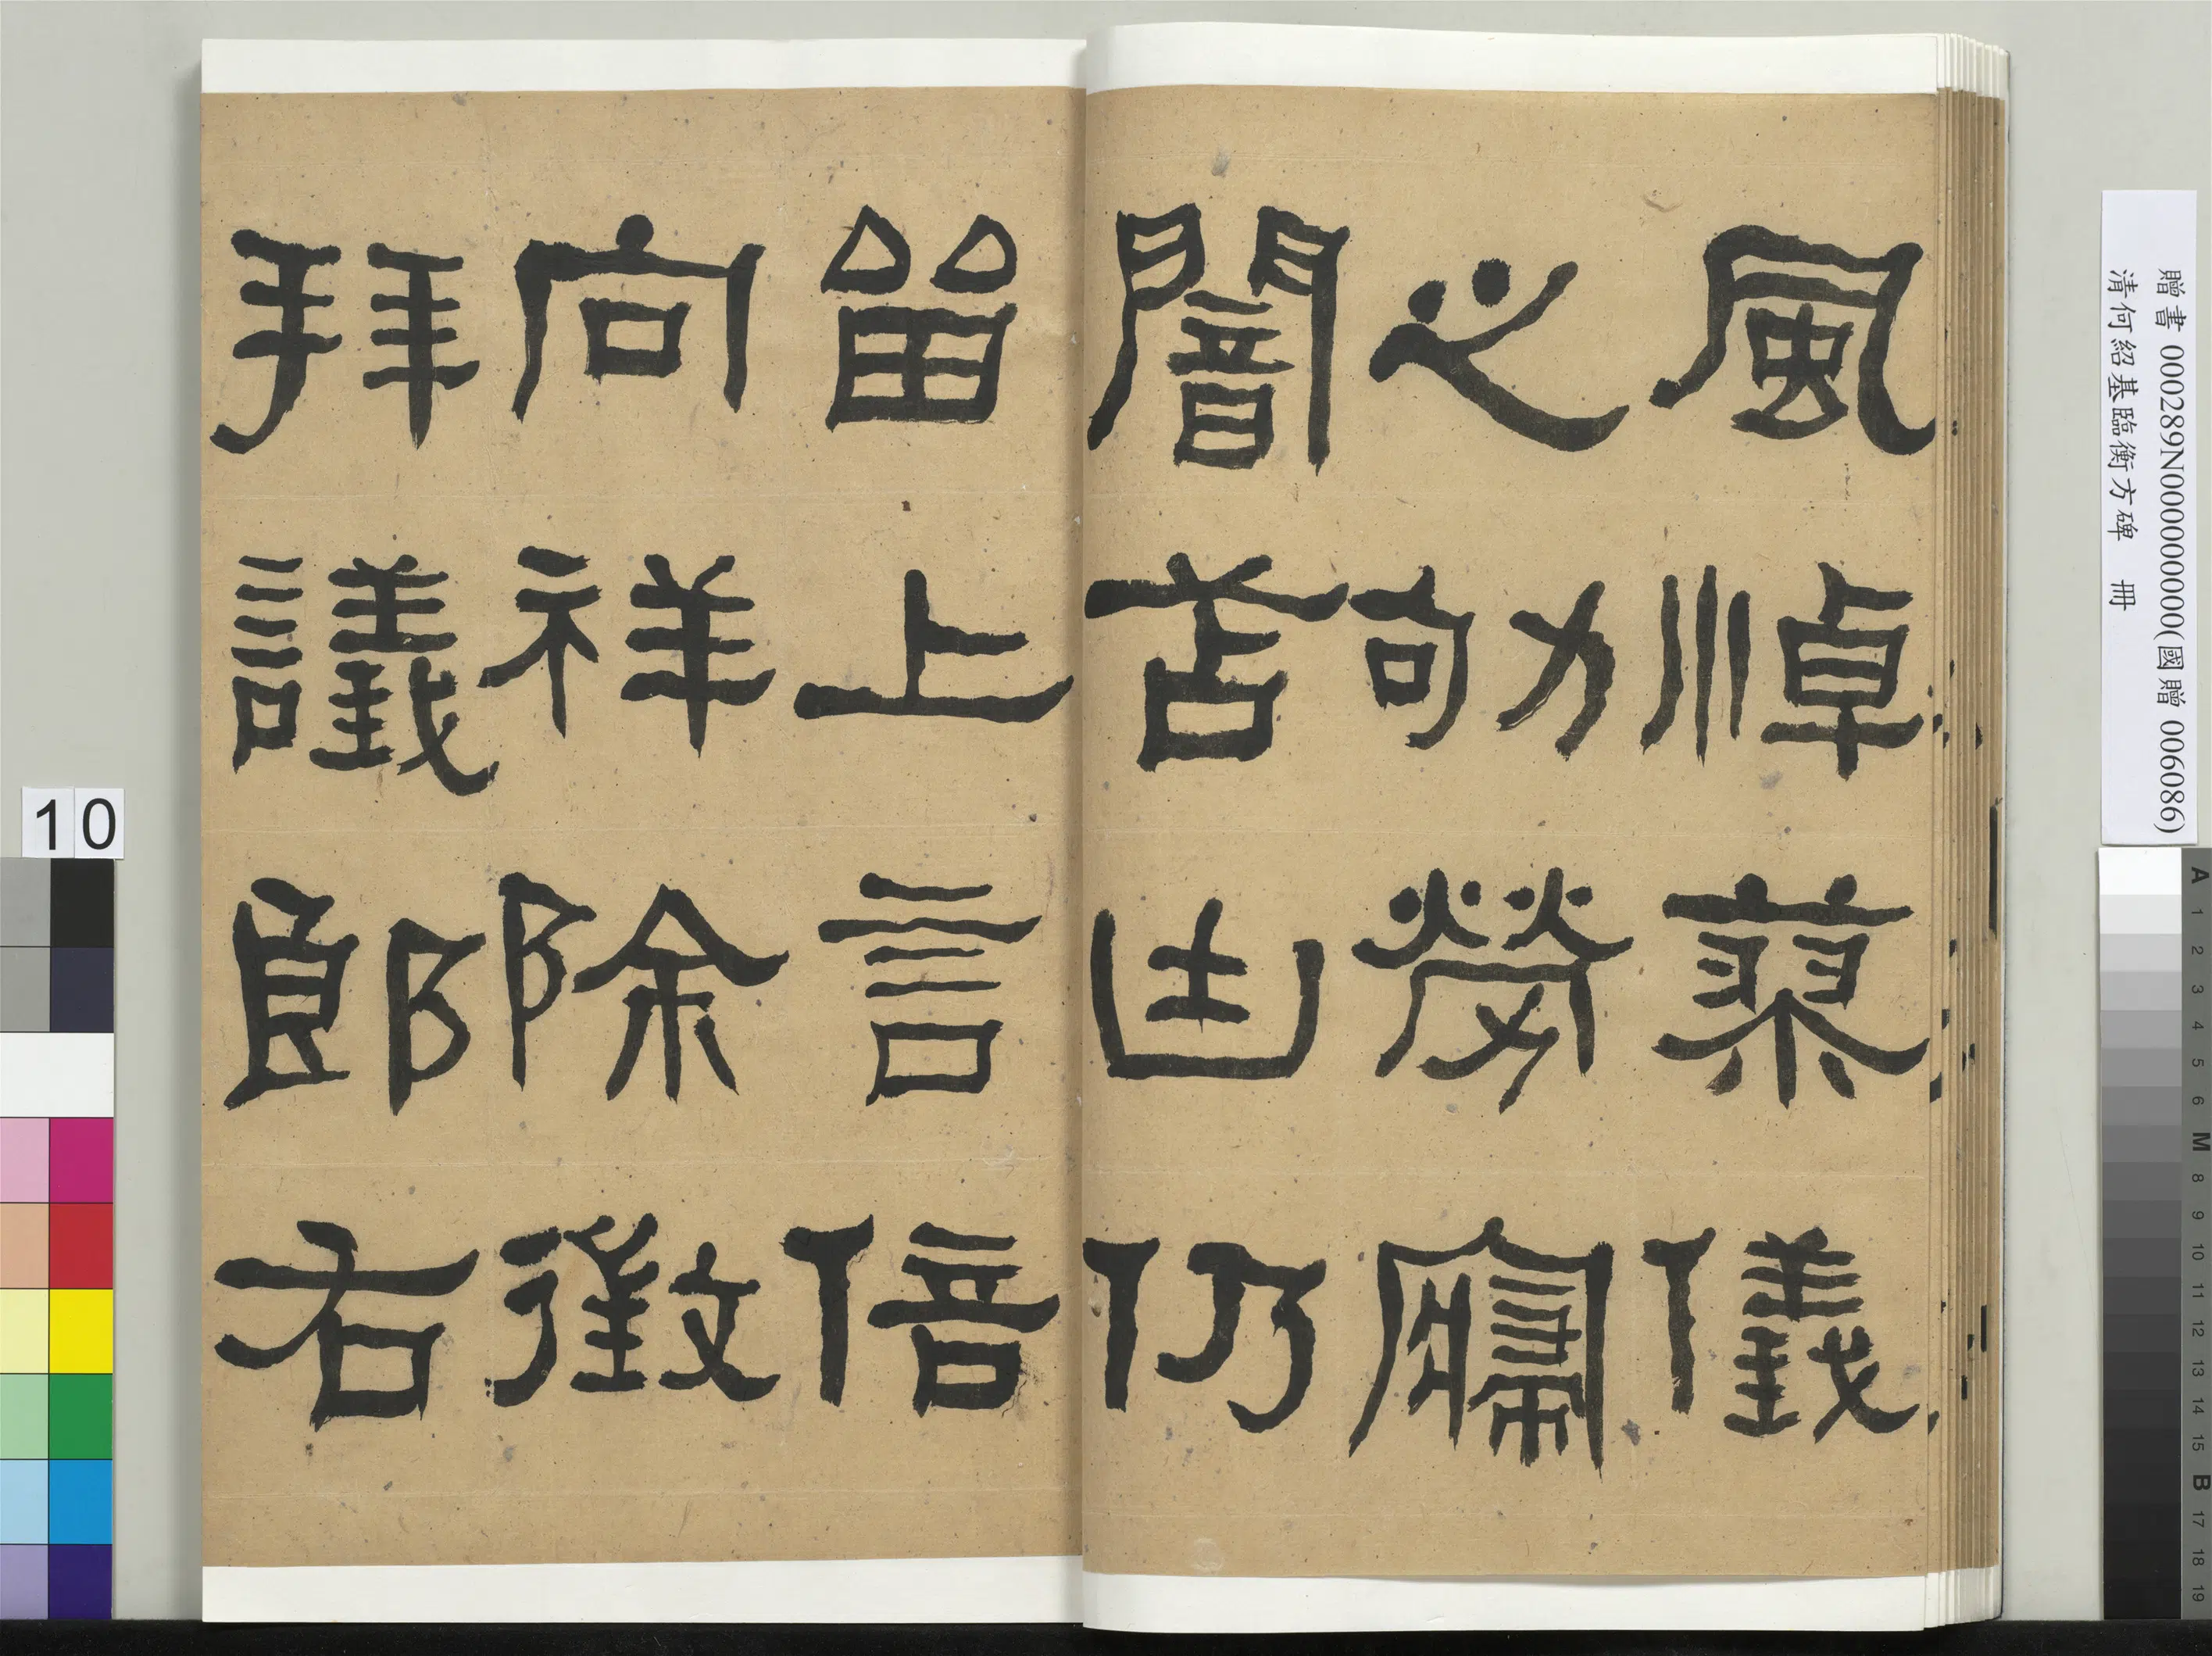 風悼蓼儀
之劬勞寢
闇苫凷仍
留上言倍
向祥除徵
拜議郎右
贈書 000289N000000000(國贈 006086)
清何紹基臨衡方碑 冊
10
A 1 2 3 4 5 6 M 8 9 10 11 12 13 14 15 B 17 18 19